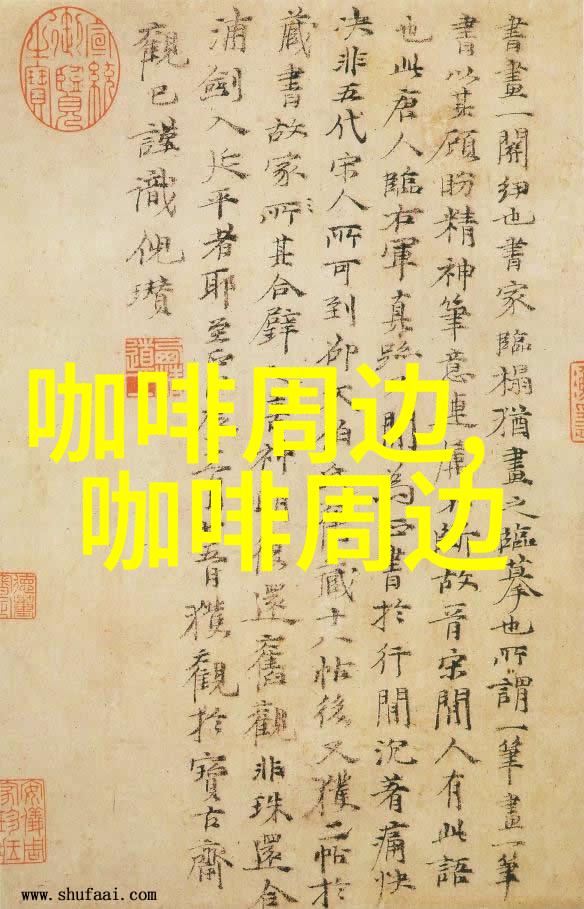 宣統御覽之寶
書畫一關紐也書家臨榻猶畫之臨摹也所謂一筆畫一筆
書以其顧盼精神筆意連屬不斷故晉宋間人有此語
也此唐人臨右軍真跡書於行間沉著痛快
決非五代宋人所可到藏十八帖後又獲二帖於
藏書故家所其合璧還舊觀非珠還合
浦劍入延平者耶至獲觀於寶古齋
觀已謹識倪瓚
咖啡周边,
咖啡周边
www.shufaai.com